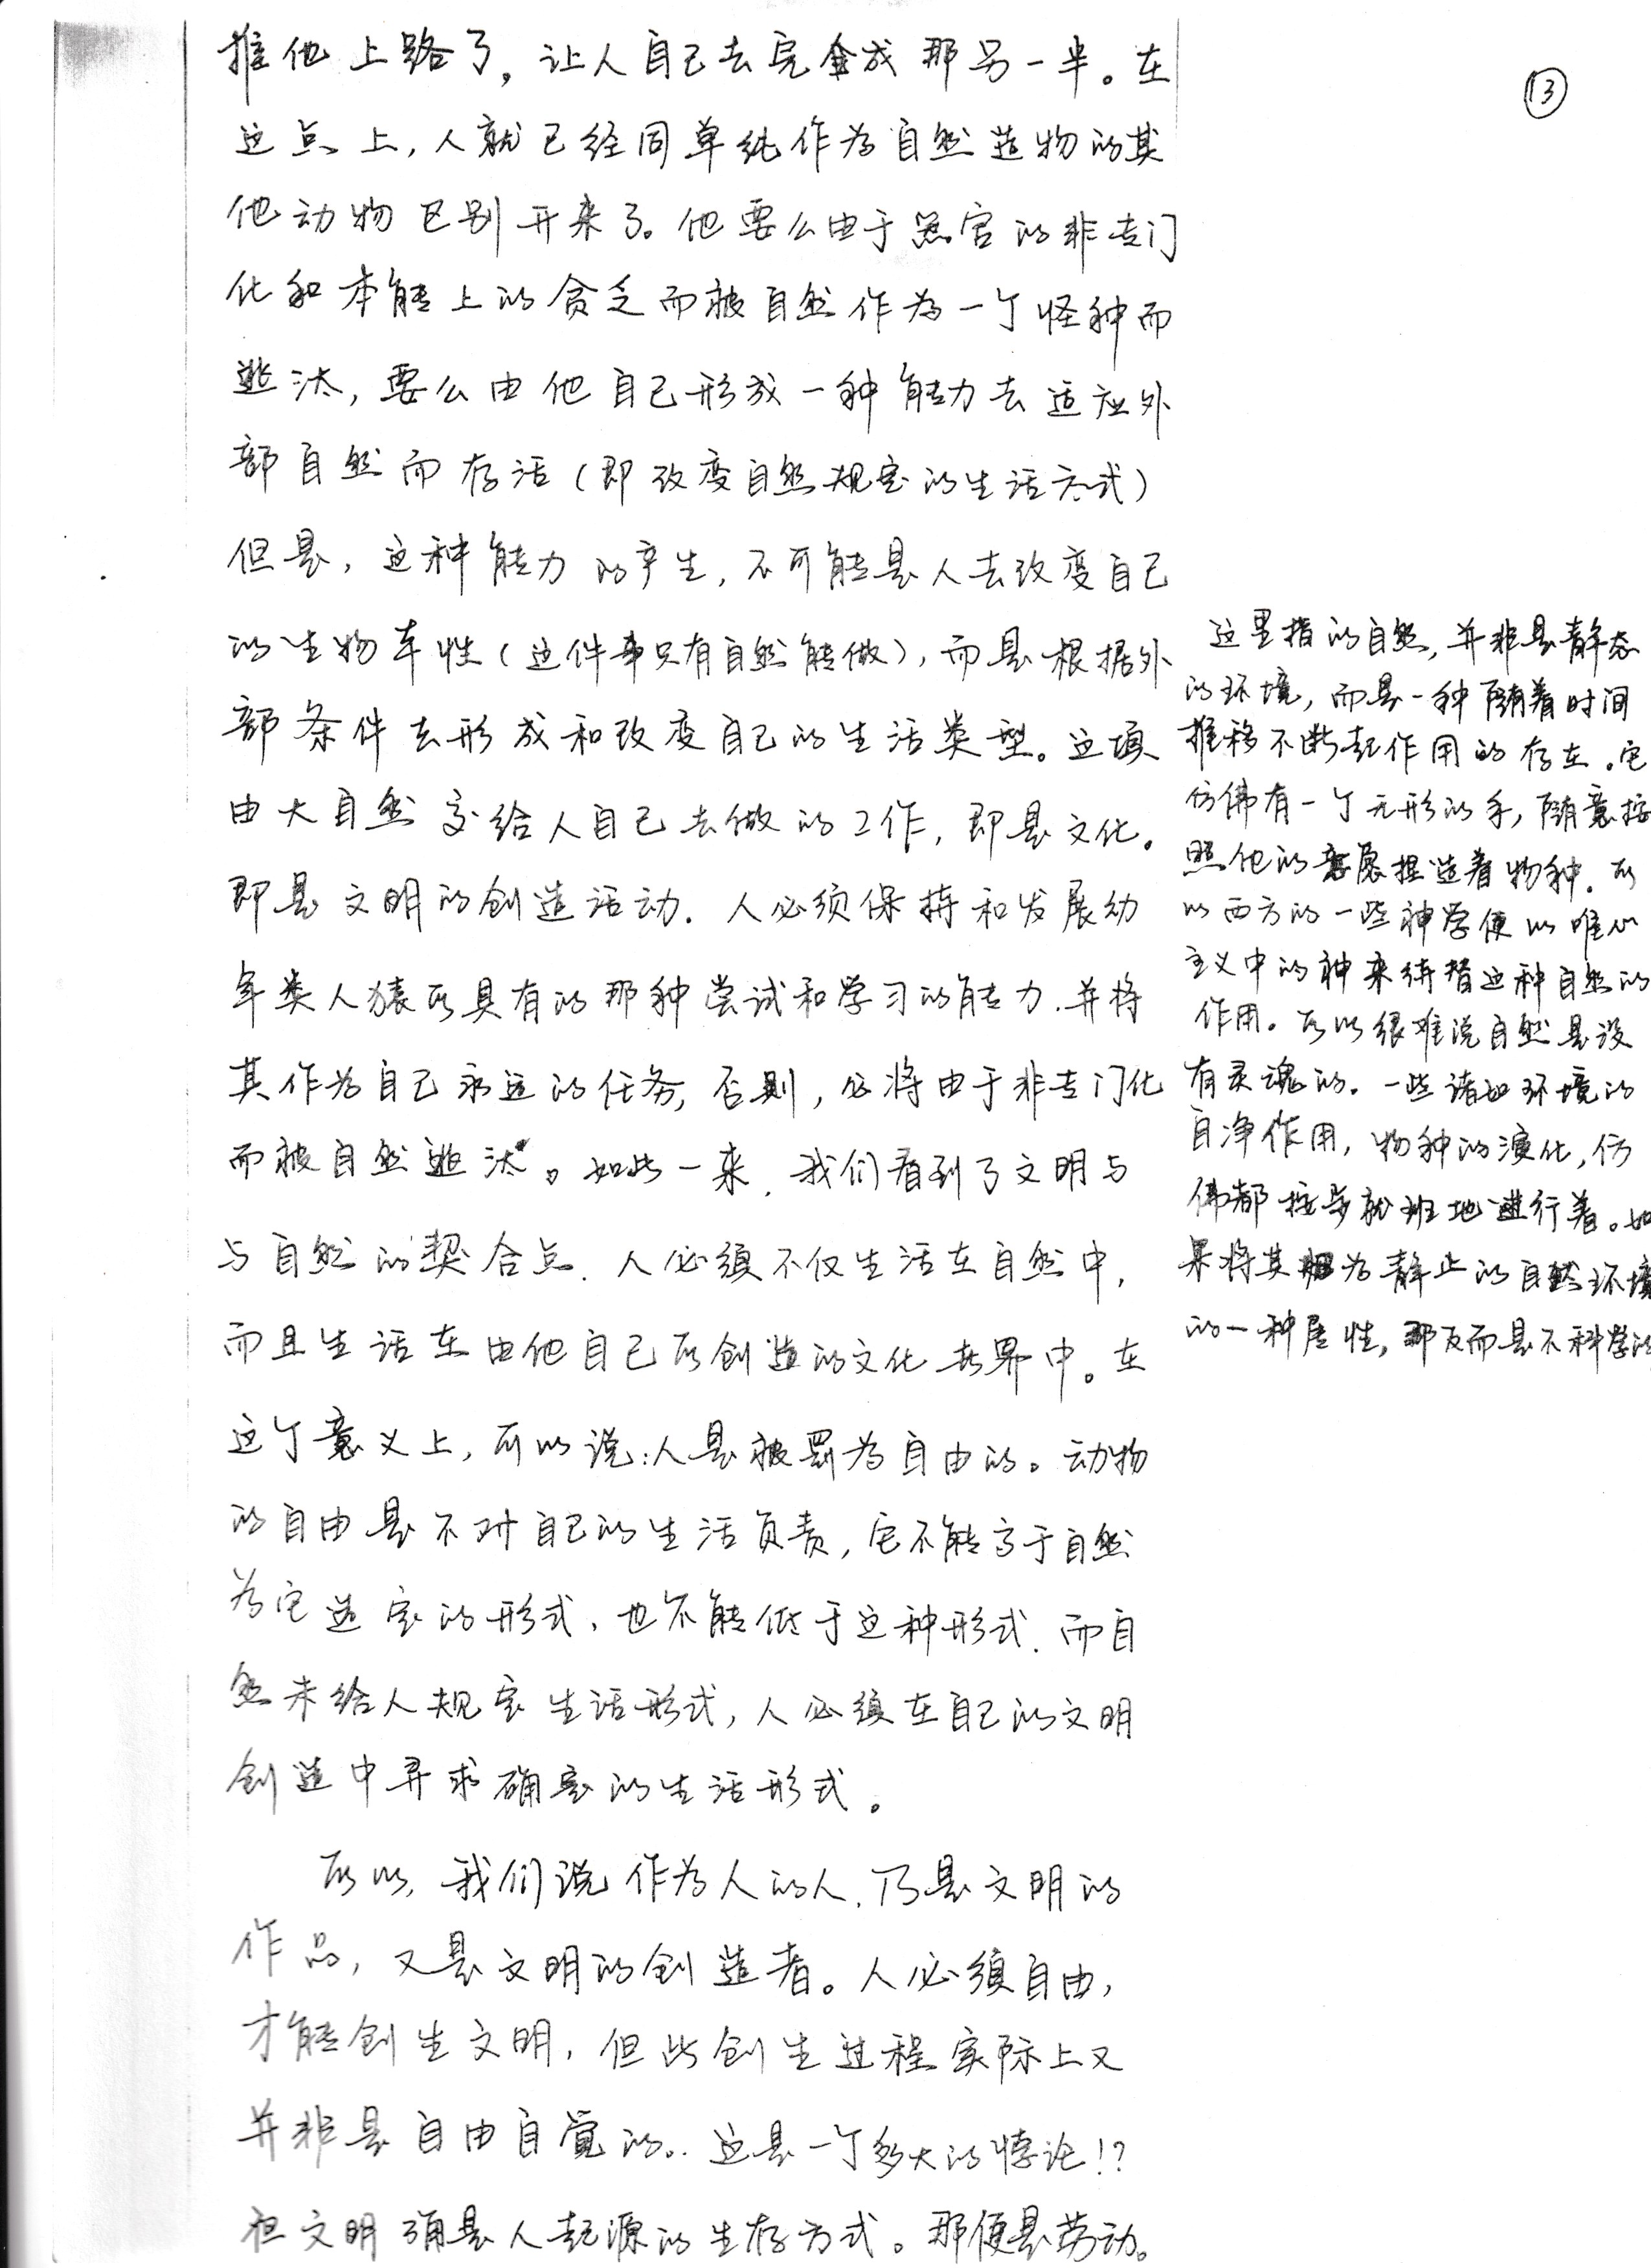 推他上路了，让人自己去完成那另一半。在
这点上，人就已经同单纯作为自然造物的其
他动物区别开来了。他要么由于器官的非专门
化和本能上的贫乏而被自然作为一个怪种而
逃汰，要么由他自己形成一种能力去适应外
部自然而存活（即改变自然规定的生活方式）
但是，这种能力的产生，不可能是人去改变自己
的生物本性（这件事只有自然能做），而是根据外
部条件去形成和改变自己的生活类型。这项
由大自然交给人自己去做的工作，即是文化。
即是文明的创造活动．人必须保持和发展幼
年类人猿所具有的那种尝试和学习的能力．并将
其作为自己永远的任务，否则，必将由于非专门化
而被自然逃汰。如此一来，我们看到了文明与
与自然的契合点．人必须不仅生活在自然中，
而且生活在由他自己所创造的文化世界中。在
这个意义上，可以说：人是被罚为自由的。动物
的自由是不对自己的生活负责，它不能高于自然
为它造定的形式，也不能低于这种形式．而自
然未给人规定生活形式，人必须在自己的文明
创造中寻求确定的生活形式。
所以，我们说作为人的人，乃是文明的
作品，又是文明的创造者。人必须自由，
才能创生文明，但此创生过程实际上又
并非是自由自觉的．．这是一个多大的悖论！？
但文明确是人起源的生存方式。那便是劳动。
⑬
这里指的自然，并非是静态
的环境，而是一种随着时间
推移不断起作用的存在．它
仿佛有一个无形的手，随意按
照他的意愿捏造着物种．所
以西方的一些神学便以唯心
主义中的神来代替这种自然的
作用。所以很难说自然是没
有灵魂的．一些诸如环境的
自净作用，物种的演化，仿
佛都按步就班地进行着。如
果将其归为静止的自然环境
的一种属性，那反而是不科学的